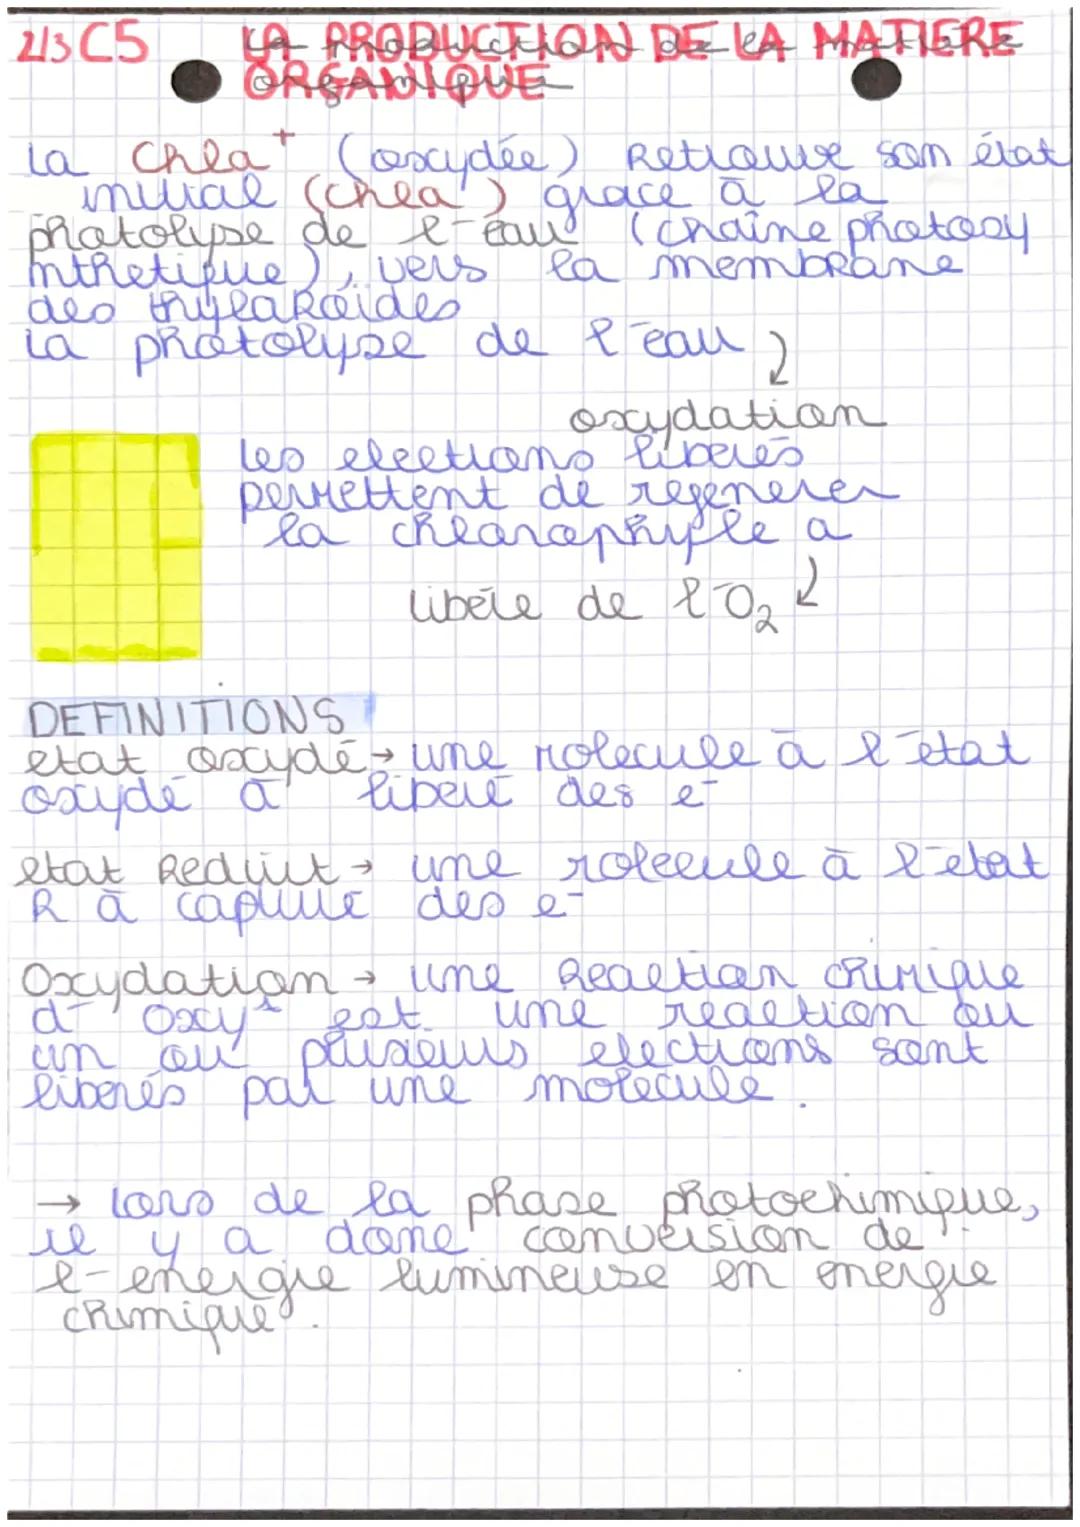 2/3 C5 LA PRODUCTION DE LA MATIERE
ORGANIQUE
La Chla⁺ (oxydée) Retrouve son état
initial (chla) grace à la
photolyse de l'eau (chaîne photosy
nthetique), vers la membrane
des thylakoïdes
La photolyse de l'eau
oxydation
les electrons liberés
permettent de regenerer
la chlorophyle a
libére de l'O₂
DEFINITIONS
etat oxydé → une molecule à l'état
oxydé à liberé des e⁻
etat Reduit → une molecule à l'etat
R à capturé des e⁻
Oxydation → une Reaction chimique
d' oxyᵗ est une reaction ou
un ou plusieurs electrons sont
liberés par une molecule.
→ Lors de la phase photochimique,
il y a donc conversion de
l'energie lumineuse en energie
chimique.